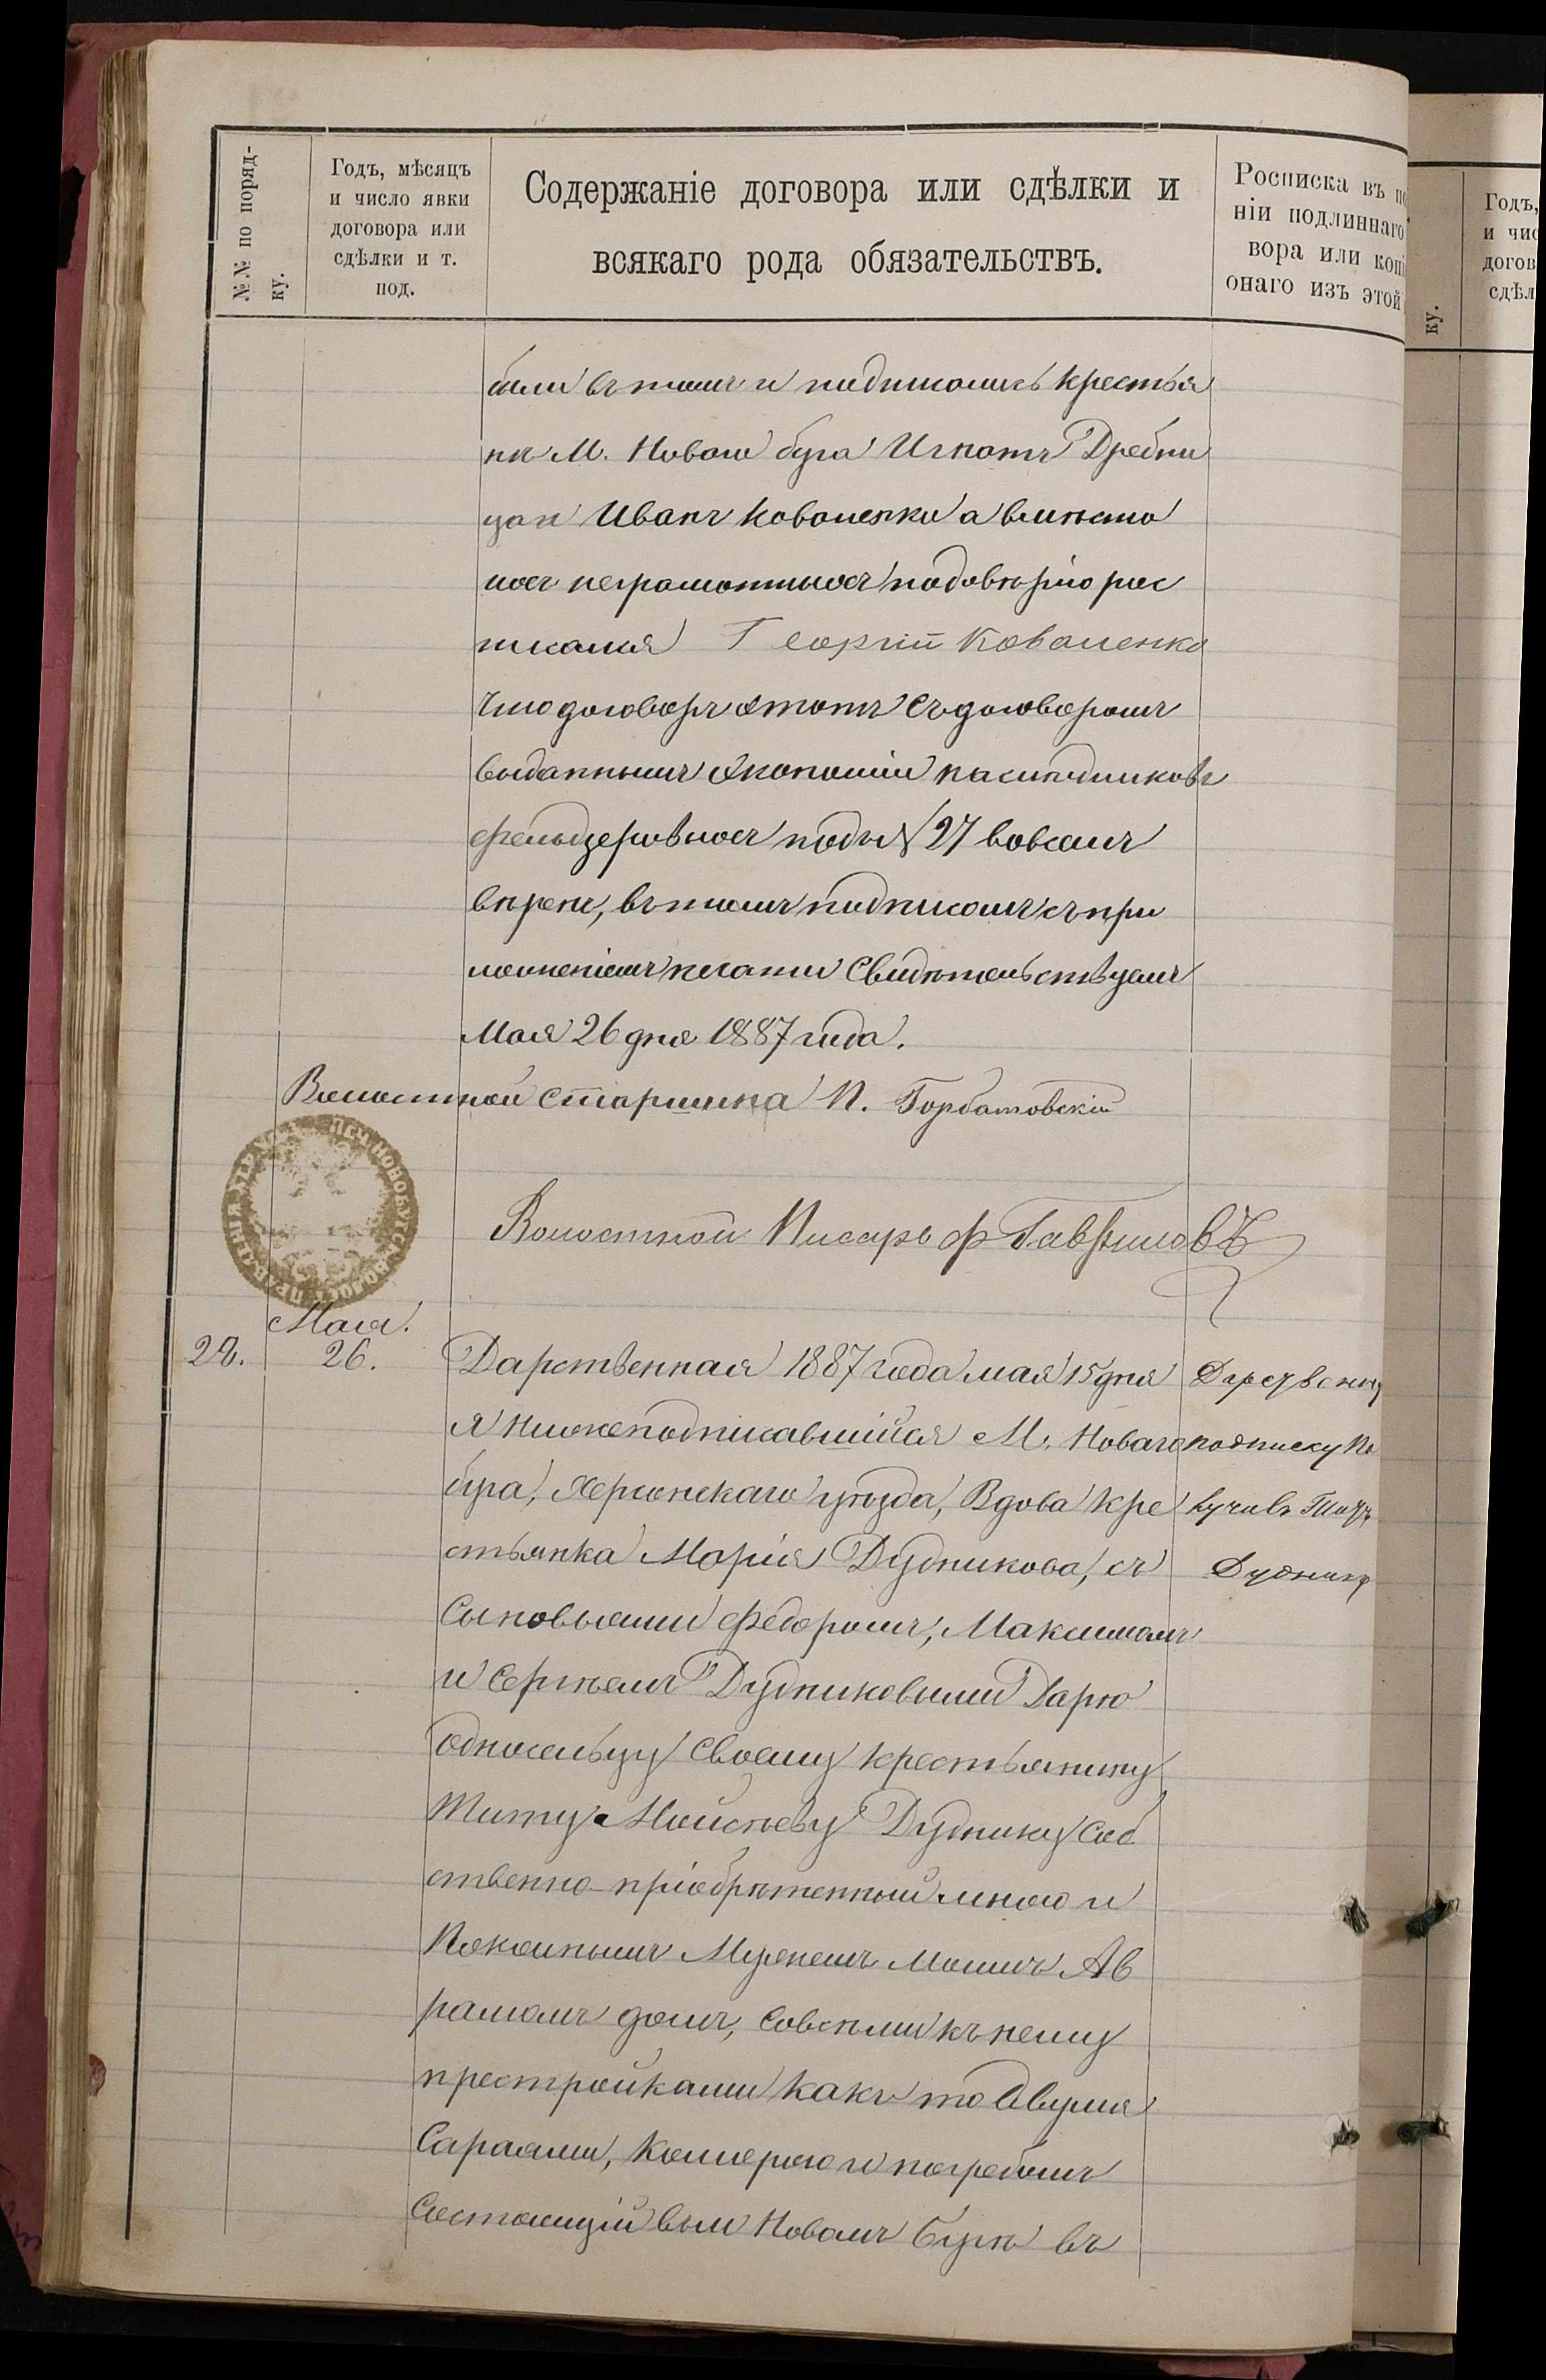 №№ по поряд-
ку.
Годъ, мѣсяцъ
и число явки
договора или
сдѣлки и т.
под.
Содержаніе договора или сдѣлки и
всякаго рода обязательствъ.
Росписка въ по
ніи подлиннаго
вора или копі
онаго изъ этой
ку.
Годъ,
и чис
догов
сдѣл
были въ томъ и подписались Крестья
не М. Новаго буга Игнатъ
Иванъ Коваленко а вмѣсто
ихъ неграмотныхъ по довѣрію рос
писался Георгій Коваленко
Что договоръ этотъ съ договоромъ
выданнымъ Экономіи наслѣдниковъ
подъ № 27 во всемъ
вѣренъ, въ томъ подписомъ съ при
ложеніемъ печати Свидѣтельствуемъ
Мая 26 дня 1887 года.
Волостной Старшина П. Горбатовскій
Волостной Писарь Ф Гавриловъ
Мая.
28.
26.
Дарственная 1887 года мая 15 дня
я Нижеподписавшійся М. Новаго
буга, Херсонскаго уѣзда, Вдова Кре
стьянка Марія Дудникова, съ
Сыновьями Федоромъ, Максимомъ
и Сергѣемъ Дудниковыми Дарю
односельцу Своему Крестьянину
Титу Моисѣеву Дуднику Соб
ственно пріобрѣтенный мною и
Покойнымъ Мужемъ Моимъ Ав
рамомъ домъ, Совсѣми къ нему
пристройками какъ то Двумя
Сараями, Коморою и погребомъ
Состоящій въ М Новомъ Бугѣ въ
Дарственну
подписку По
лучивъ Титъ
Дудникъ